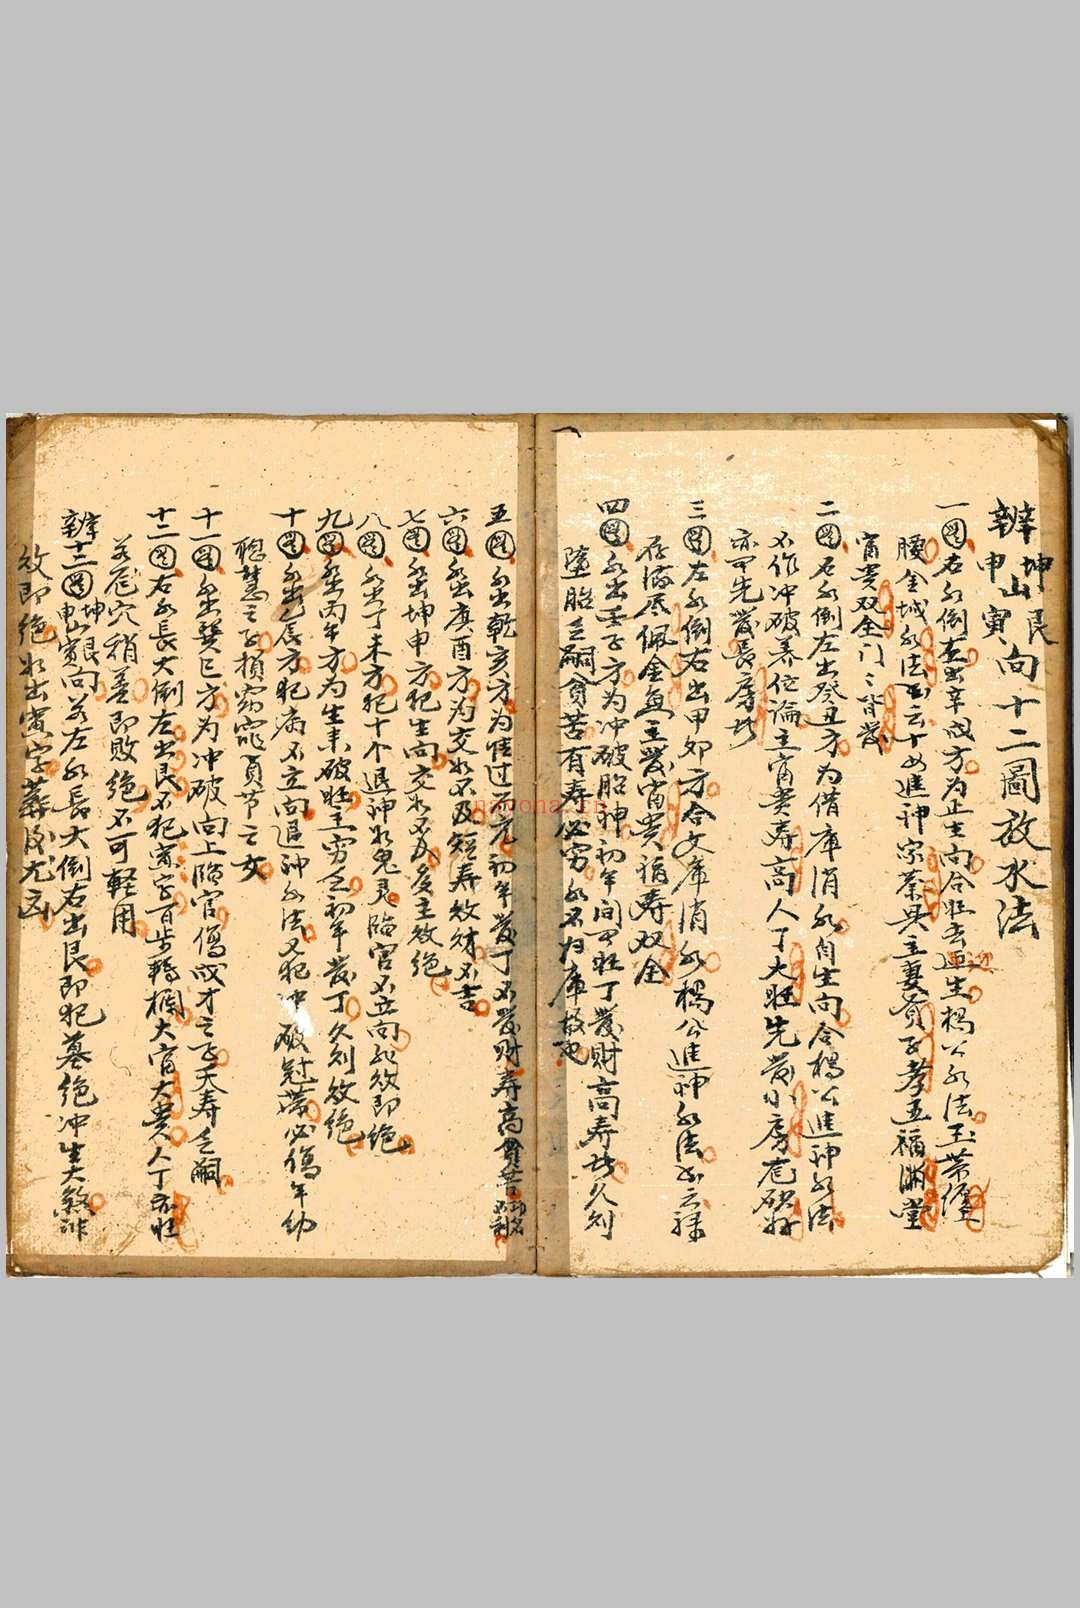 辨坤艮
申山寅向十二圖放水法
一图右水倒左出辛戌方为正生向合旺去迎生楊公水法玉带缠
腰金城水法書云十四進神家業興主妻賢子孝五福滿堂
富贵双全门々皆發
二图右水倒左出癸丑方为借庫消水自生向合楊公進神水法
不作冲破养位論主富贵寿高人丁大旺先發小房
亦可先發長房
三图左水倒右出甲卯方合文庫消水楊公進神水法書云祿
存流尽佩金魚主發富贵福寿双全
四图水出壬子方为冲破胎神初年间可旺丁發财高寿久则
墮胎乏嗣貧苦有寿必穷水不归庫故也
五图水出乾亥方为情过而亢初年發丁不發财寿高功名不利
六图水出庚酉方为交如不及短寿敗财不吉
七图水出坤申方犯生向交如不及主敗绝
八图水出丁未方犯十个退神水鬼灵臨官不立向水敗即绝
九图水出丙午方为生来破旺主穷乏初年發丁久则敗绝
十图水出乙辰方犯病不立向退神水法又犯冲破冠带必傷年幼
聪慧之子损窈窕貞节之女
十一图水出巽巳方为冲破向上临官傷成才之子夭寿乏嗣
十二图右水長大倒左出艮不犯寅字百步轉欄大富大贵人丁亦旺
若龙穴稍差即敗绝不可軽用
辨十二图坤申山艮寅向若左水長大倒右出艮即犯墓绝冲生大煞非
敗即绝水出寅字葬後尤凶